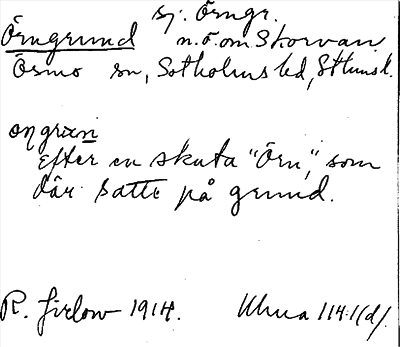 sj. Örngr.
Örngrund n.ö. om Skorvan
Ösmo sn, Sotholms hd, Stlmsl.
Efter en skuta "Örn", som
där satte på grund.
R. Firlow 1914. Uhua 114:1(d).